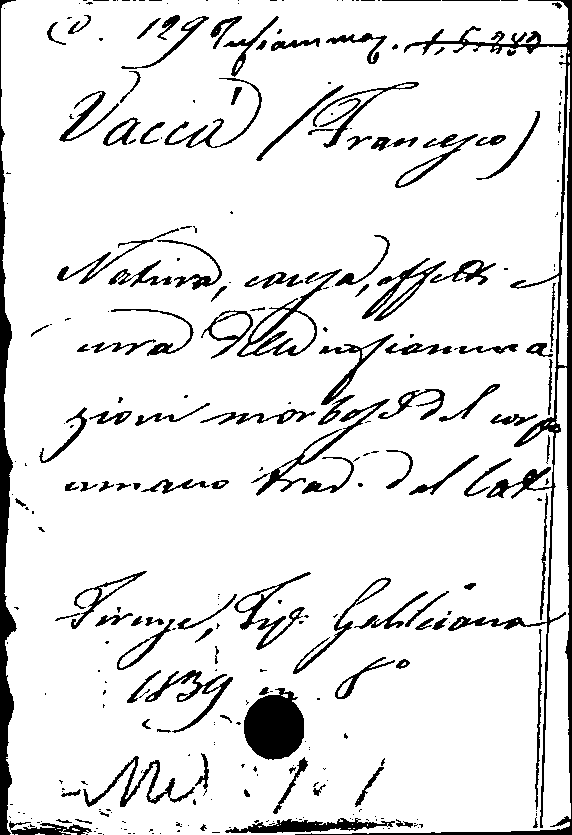 129 Infiammaz. 1.5.282
Vaccà (Francesco)
Natura, causa, effetti e
cura delle infiamma
zioni morbose del corpo
umano trad. dal lat.
Firenze, Tip. Galileiana
1839 in 8°
Med. 1